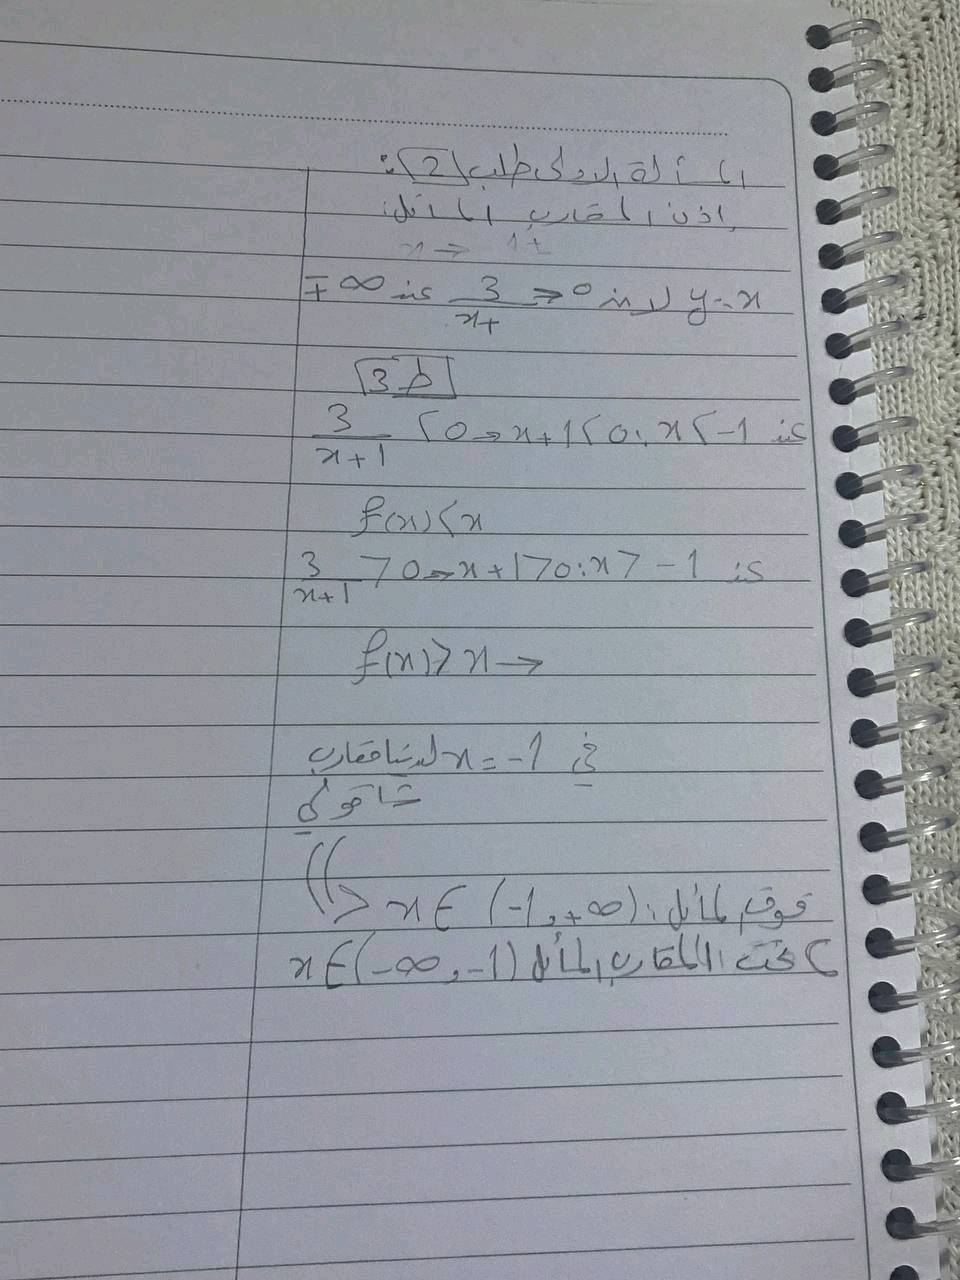 المسألة الاولى طلب 2:
إذن المقارب المائل:
x → 1+
y = x لان 3/x+ → 0 عند ∓∞
ط 3
عند x < -1 : x+1 < 0 → 3/x+1 < 0
f(x) < x
عند x > -1 : x+1 > 0 → 3/x+1 > 0
f(x) > x →
في x = -1 لدينا مقارب
شاقولي
فوق المائل: x ∈ (-1, +∞)
تحت المقارب المائل x ∈ (-∞, -1)